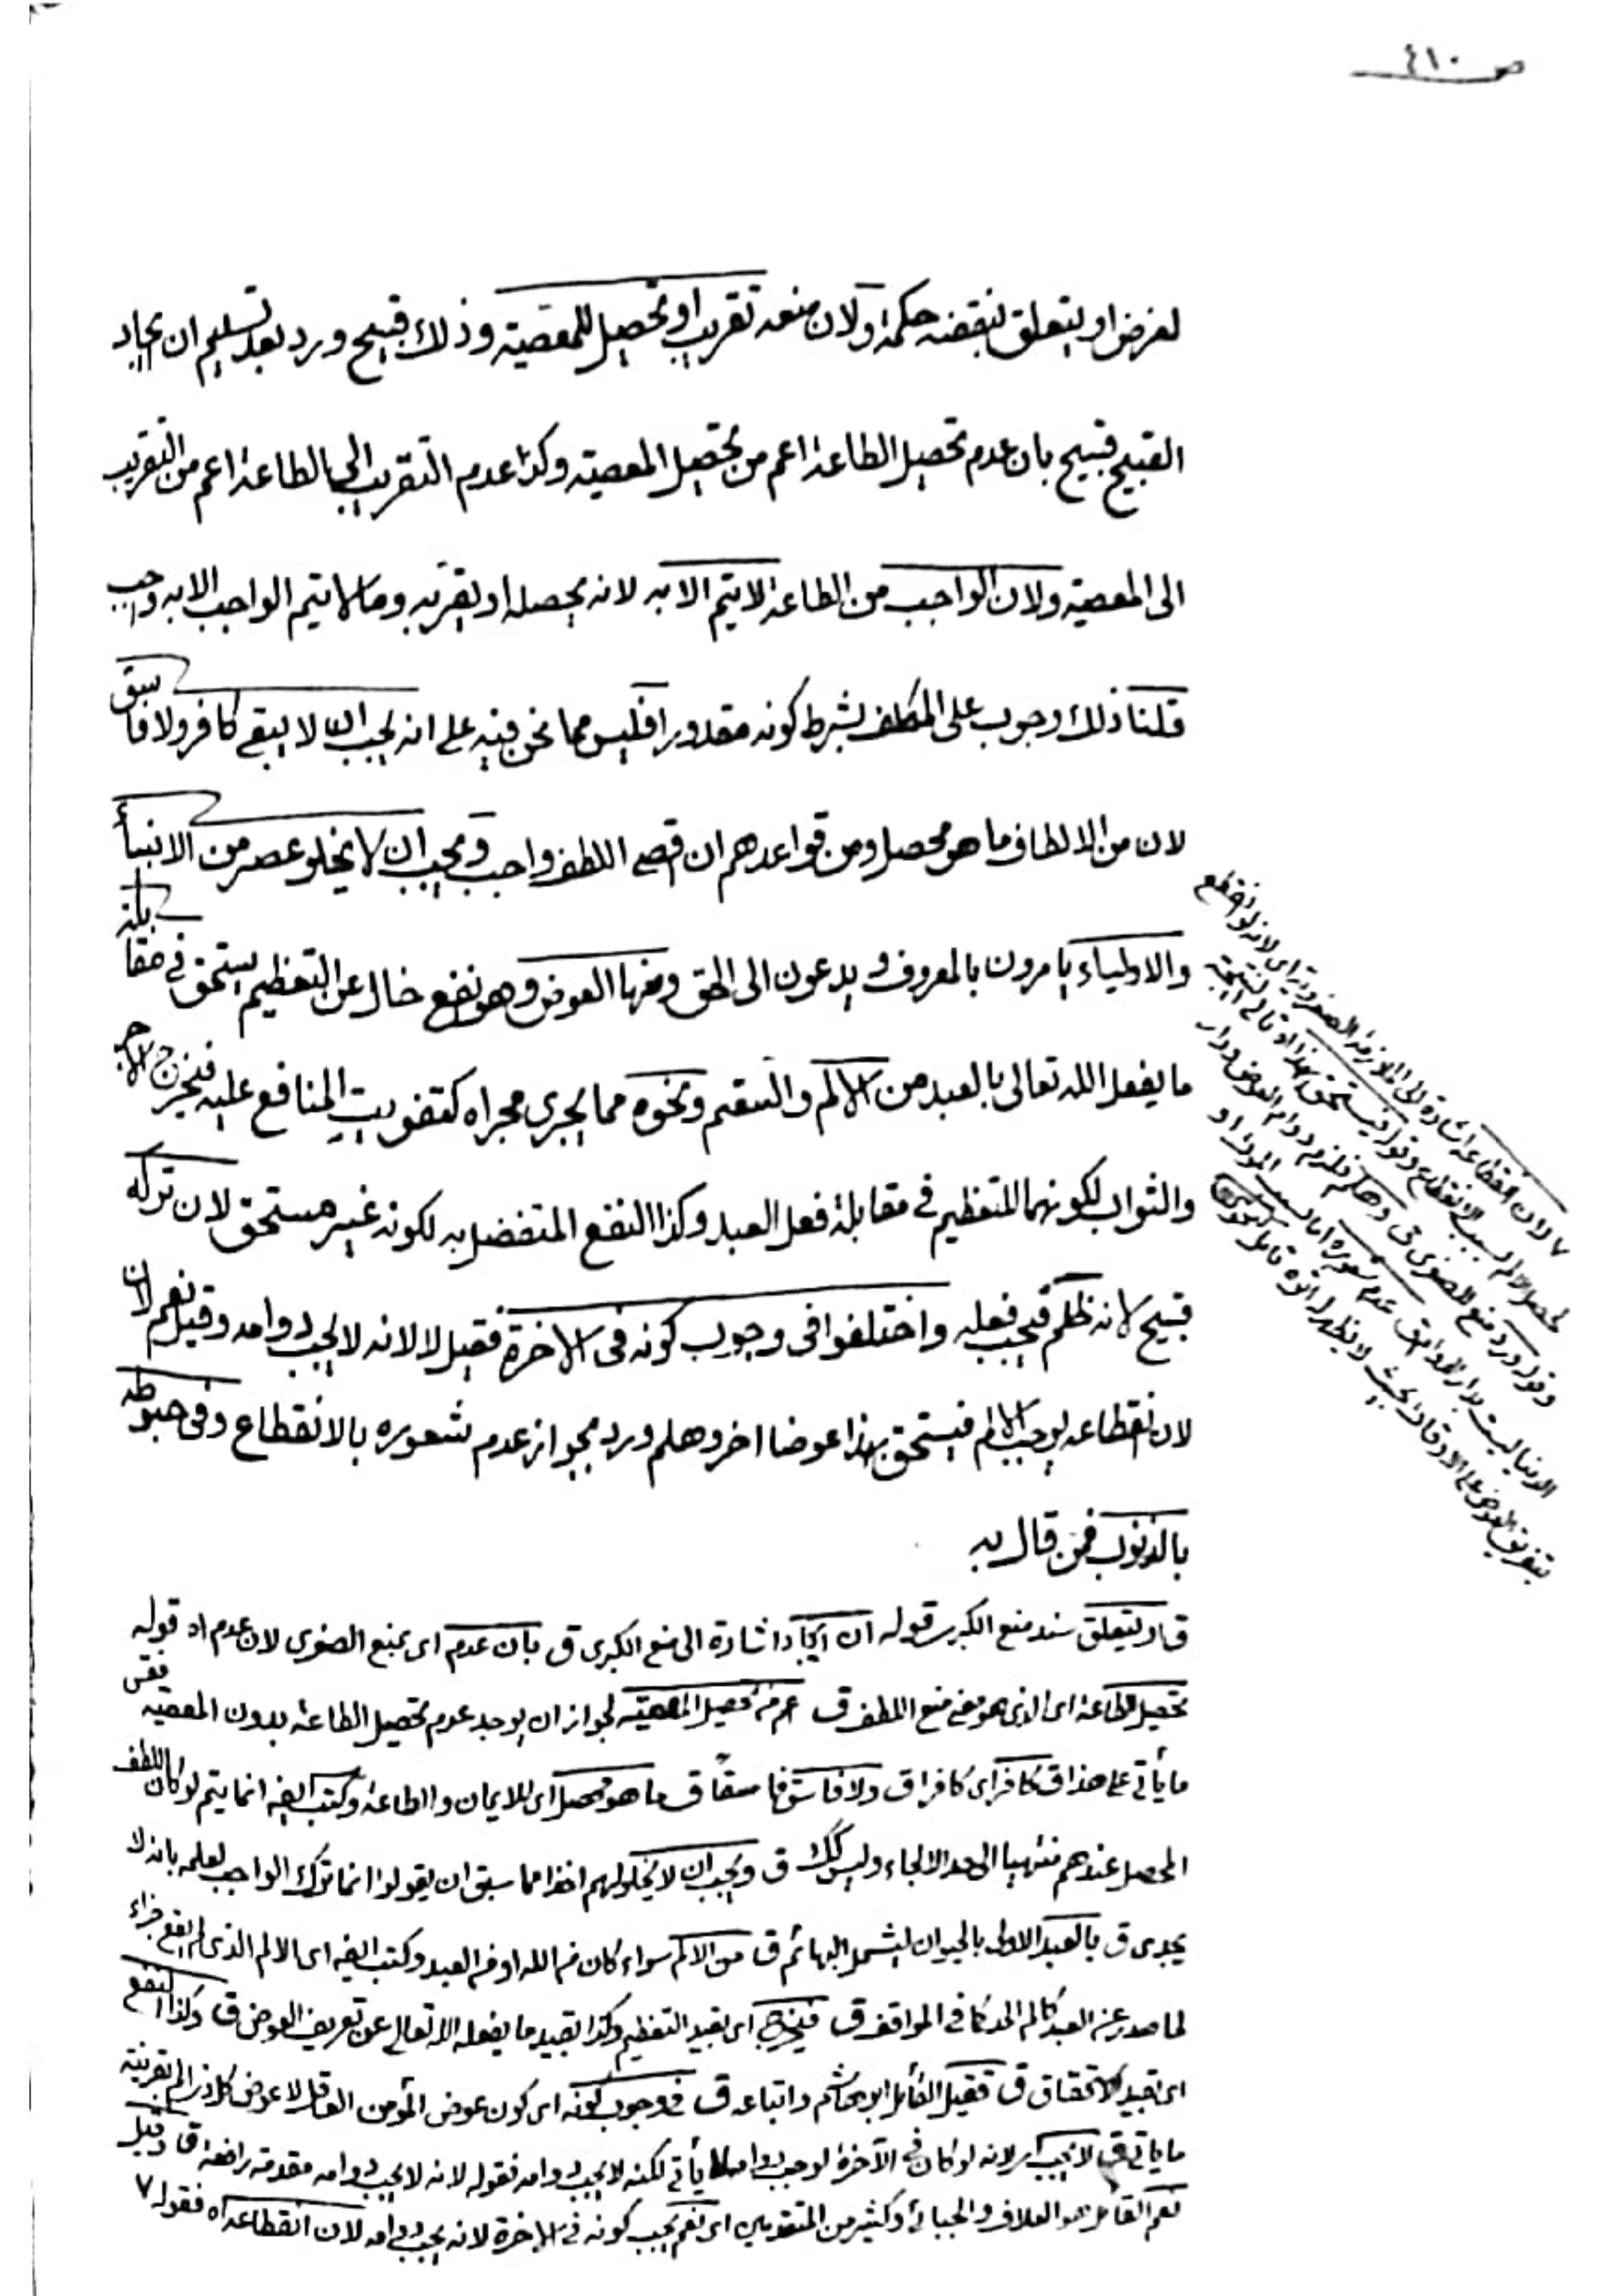 ص ٤١٠
لغرض او يتعلق بنقضه حكمة ولان منعه تقريب او تحصيل للمعصية وذلك قبيح ورد بعد تسليم ان ايجاد
القبيح قبيح بان عدم تحصيل الطاعة اعم من تحصيل المعصية وكذا عدم التقريب الى الطاعة اعم من التقريب
الى المعصية ولان الواجب من الطاعة لا يتم الا به لانه يحصله او يقربه وما لا يتم الواجب الا به واجب
قلنا ذلك وجوب على المكلف بشرط كونه مقدورا فليس مما نحن فيه على انه يجب ان لا يبقى كافر ولا فاسق
لان من الالطاف ما هو محصل ومن قواعدهم ان اقصى اللطف واجب ويجب ان لا يخلو عصر من الانبياء
والاولياء يامرون بالمعروف ويدعون الى الحق ومنها العوض وهو نفع خال عن التعظيم يستحق في مقابلة
ما يفعل الله تعالى بالعبد من الالم والسقم ونحوه مما يجري مجراه كتفويت المنافع عليه فيخرج الاجر
والثواب لكونهما للتعظيم في مقابلة فعل العبد وكذا النفع المتفضل به لكونه غير مستحق لان تركه
قبيح لانه ظلم فيجب فعله واختلفوا في وجوب كونه في الاخرة فقيل لا لانه لا يجب دوامه وقيل نعم لان
لان انقطاعه يوجب الالم فيستحق بهذا عوضا اخر وهلم ورد بجواز عدم شعوره بالانقطاع وفي حبوطه
بالذنوب فمن قال به
ق او يتعلق سند منع الكبرى قوله ان ايجاد اشارة الى منع الكبرى ق بان عدم اى بمنع الصغرى لان عدم اه قوله
تحصيل الطاعة اى الذى هو معنى منع اللطف ق اعم من تحصيل المعصية لجواز ان يوجد عدم تحصيل الطاعة بدون المعصية
ما يأتى على هذا ق كافر اى كافرا ق ولا فاسق فاسقا ق ما هو محصل اى للايمان والطاعة وكتب ايضه انما يتم لو كان اللطف
المحصل عندهم منتهيا الى حد الالجاء وليس كك ق ويجب ان لا يخلو لهم اخذا مما سبق ان يقولوا انما ترك الواجب لعلمه بانه لا
يجدى ق بالعبد الاولى بالحيوان ليشمل البهائم ق من الالم سواء كان من الله او من العبد وكتب ايضه اى الالم الذى لم يقع جزاء
لما صدر عن العبد كالم الحد كما في المواقف ق فيخرج اى بقيد التعظيم وكذا بقيد ما يفعله الله تعالى عن تعريف العوض ق وكذا النفع
اى بقيد الاستحقاق ق فقيل القائل ابو هاشم واتباعه ق في وجوب كونه اى كون عوض المؤمن العاقل لا عوض كل ذى الم بقرينة
ما يأتى ق لا يجب اى لانه لو كان في الآخرة لوجب دوامه لما يأتى لكنه لا يجب دوامه فقوله لانه لا يجب دوامه مقدمة رافعة ق وقيل
نعم القائل هو العلاف والجبائى وكثير من المتقدمين اى نعم يجب كونه في الاخرة لانه يجب دوامه لان انقطاعه اه فقوله ٧
٧ لان انقطاعه اشارة الى الملازمة الصغروية اى لانه لو انقطع